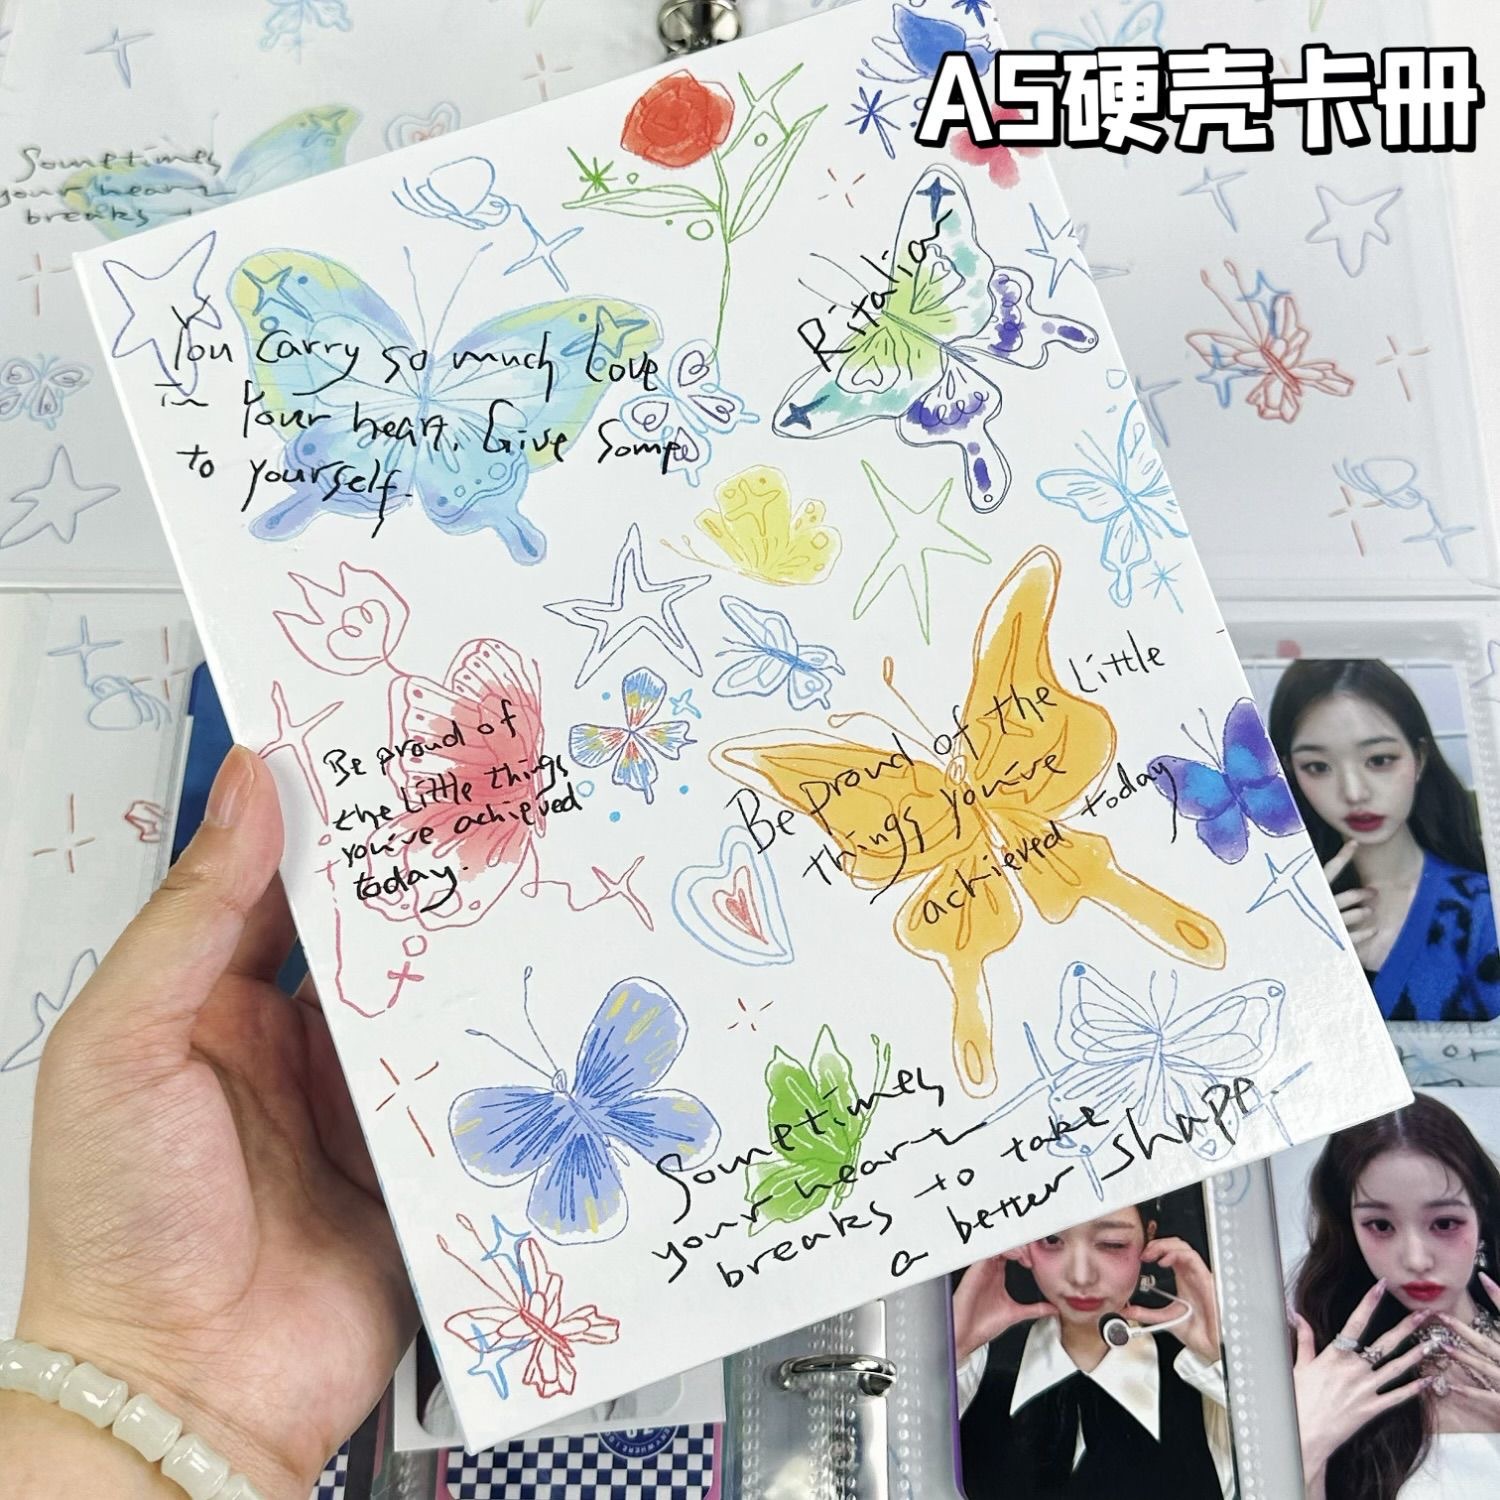 A5硬壳卡册
Sometimes
your heart
breaks t
Ritalia
You Carry so much love
in your heart. Give Some
to yourself.
Be proud of
the Little things
you've achieved
today.
Be proud of the Little
things you've
achieved today.
Sometimes
your heart
breaks to take
a better shape.